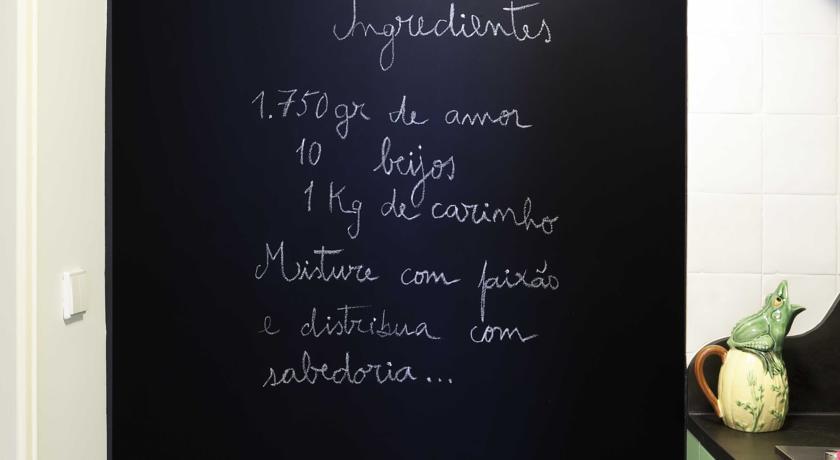 Ingredientes
1.750gr de amor
10 beijos
1 Kg de carinho
Misture com paixão
e distribua com
sabedoria...